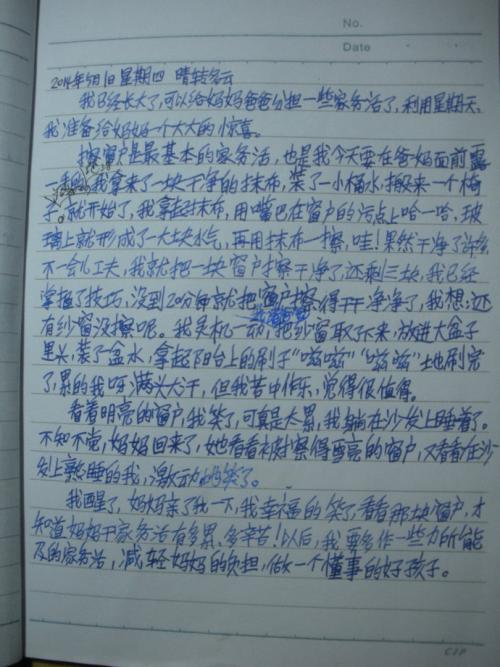 No.
Date
2014年5月1日 星期四 晴转多云
我已经长大了,可以给妈妈爸爸分担一些家务活了,利用星期天,
我准备给妈妈一个大大的惊喜。
擦窗户是最基本的家务活,也是我今天要在爸妈面前露
一手的 我拿来了一块干净的抹布,装了一小桶水,搬来一个椅
子。就开始了,我拿起抹布,用嘴巴在窗户的污点上哈一哈,玻
璃上就形成了一大块水气,再用抹布一擦,哇!果然干净了许多
不一会儿工夫,我就把一块窗户擦干净了,还剩三块,我已经
掌握了技巧,没到20分钟就把窗户擦得干干净净了,我想:还
有纱窗没擦呢。我灵机一动,把纱窗取了下来,放进大盆子
里头,装了盆水,拿起阳台上的刷子“嗞嗞”“嗞嗞”地刷完
了,累的我呀满头大汗,但我苦中作乐,觉得很值得。
看着明亮的窗户,我笑了,可真是太累,我躺在沙发上睡着了。
不知不觉,妈妈回来了,她看看被擦得雪亮的窗户,又看看在沙
发上熟睡的我,激动的笑了。
我醒了,妈妈亲了我一下,我幸福的笑了看看那块窗户,才
知道妈妈干家务活有多累、多辛苦!以后,我要多作一些力所能
及的家务活,减轻妈妈的负担,做一个懂事的好孩子。